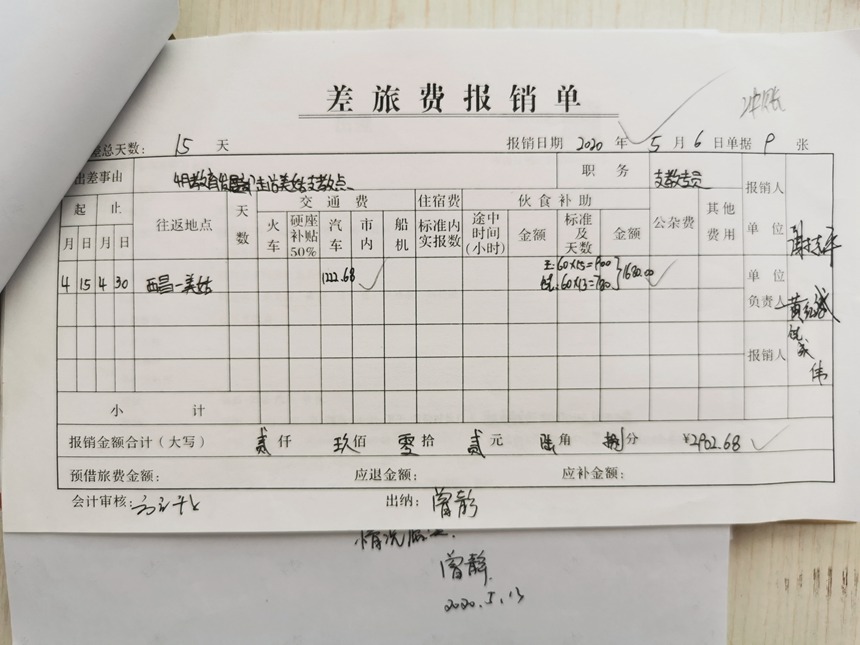 差旅费报销单
冲账
差总天数: 15 天 报销日期 2020 年 5 月 6 日 单据 9 张
出差事由 职务 支教专员 报销人
起 止 往返地点 天数 交通费 住宿费 伙食补助 公杂费 其他费用 单位
月 日 月 日 火车 硬座补贴50% 汽车 市内 船机 标准内实报数 途中时间(小时) 金额 标准及天数 金额
4 15 4 30 西昌—美姑 1222.68 王:60×15=900 1680.00 单位负责人
伍:60×13=780
报销人
小计
报销金额合计(大写) 贰仟 玖佰 零拾 贰元 陆角 捌分 ¥2902.68
预借旅费金额: 应退金额: 应补金额:
会计审核: 出纳: 曾静
曾静
2020.5.13